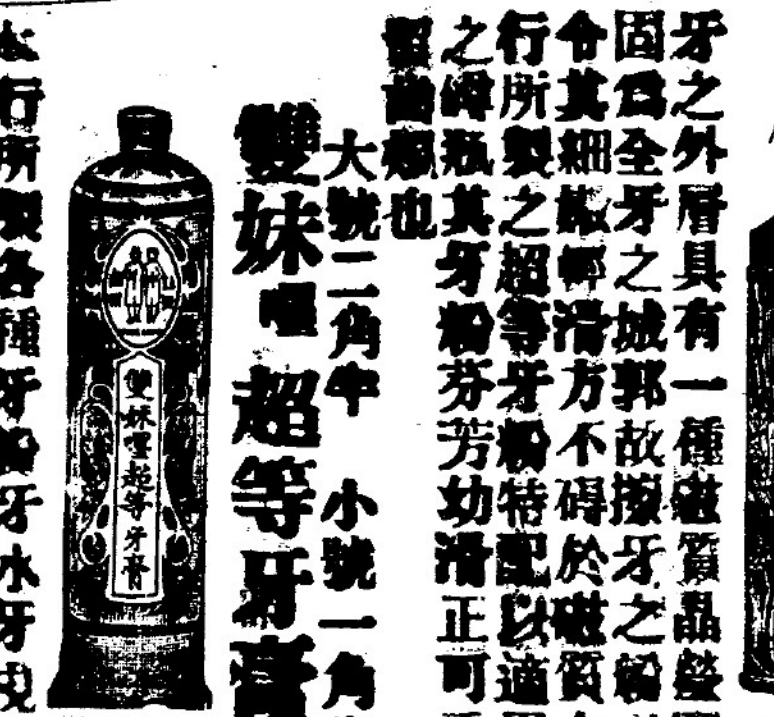 牙之外層具有一種磁質晶瑩
固為全牙之城郭故擦牙之粉
令其細緻輕滑方不碍於磁質
行所製之超等牙粉特配以適
之罇瓶其牙粉芬芳幼滑正可
也
大號二角半 小號一角
雙妹嚜超等牙膏
雙妹嚜超等牙膏
本行所製各種牙粉牙水牙